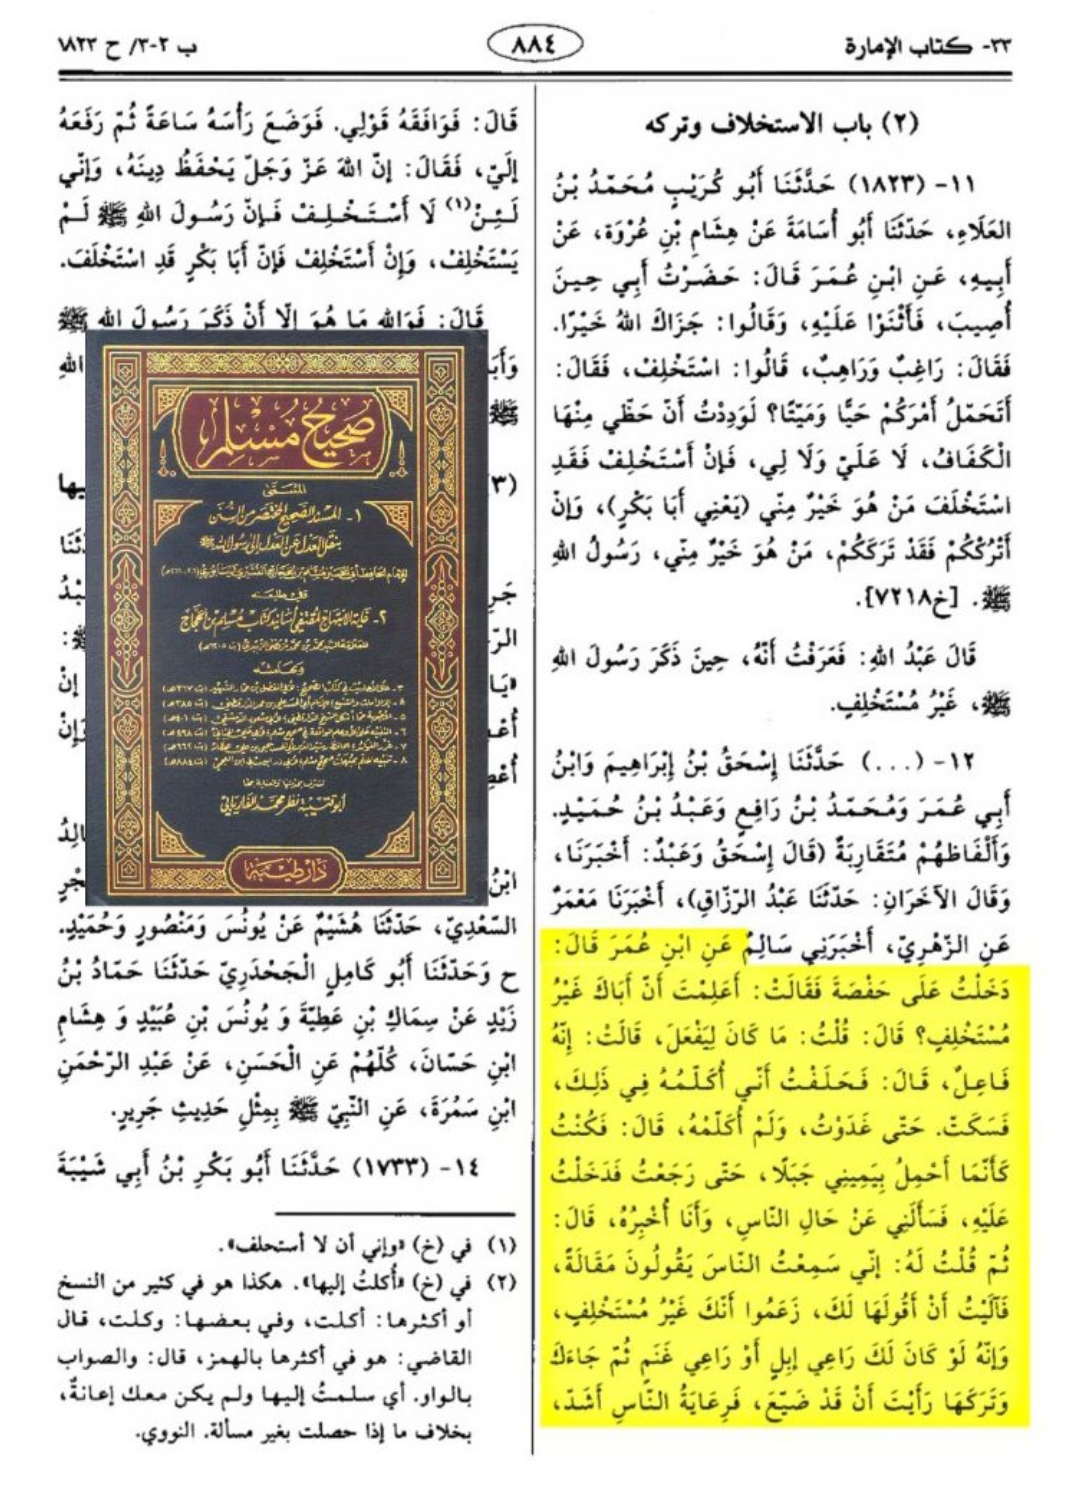 ٣٣- كتاب الإمارة
٨٨٤
ب ٢-٣/ ح ١٨٢٣
(٢) باب الاستخلاف وتركه
١١- (١٨٢٣) حَدَّثَنَا أَبُو كُرَيْبٍ مُحَمَّدُ بْنُ
العَلَاءِ، حَدَّثَنَا أَبُو أُسَامَةَ عَنْ هِشَامِ بْنِ عُرْوَةَ، عَنْ
أَبِيهِ، عَنِ ابْنِ عُمَرَ قَالَ: حَضَرْتُ أَبِي حِينَ
أُصِيبَ، فَأَثْنَوْا عَلَيْهِ، وَقَالُوا: جَزَاكَ اللهُ خَيْرًا.
فَقَالَ: رَاغِبٌ وَرَاهِبٌ، قَالُوا: اسْتَخْلِفْ، فَقَالَ:
أَتَحَمَّلُ أَمْرَكُمْ حَيًّا وَمَيِّتًا؟ لَوَدِدْتُ أَنَّ حَظِّي مِنْهَا
الْكَفَافُ، لَا عَلَيَّ وَلَا لِي، فَإِنْ أَسْتَخْلِفْ فَقَدِ
اسْتَخْلَفَ مَنْ هُوَ خَيْرٌ مِنِّي (يَعْنِي أَبَا بَكْرٍ)، وَإِنْ
أَتْرُكْكُمْ فَقَدْ تَرَكَكُمْ، مَنْ هُوَ خَيْرٌ مِنِّي، رَسُولُ اللهِ
ﷺ. [خ٧٢١٨].
قَالَ عَبْدُ اللهِ: فَعَرَفْتُ أَنَّهُ، حِينَ ذَكَرَ رَسُولَ اللهِ
ﷺ، غَيْرُ مُسْتَخْلِفٍ.
١٢- (...) حَدَّثَنَا إِسْحَقُ بْنُ إِبْرَاهِيمَ وَابْنُ
أَبِي عُمَرَ وَمُحَمَّدُ بْنُ رَافِعٍ وَعَبْدُ بْنُ حُمَيْدٍ.
وَأَلْفَاظُهُمْ مُتَقَارِبَةٌ (قَالَ إِسْحَقُ وَعَبْدٌ: أَخْبَرَنَا،
وَقَالَ الآخَرَانِ: حَدَّثَنَا عَبْدُ الرَّزَّاقِ)، أَخْبَرَنَا مَعْمَرٌ
عَنِ الزُّهْرِيِّ، أَخْبَرَنِي سَالِمٌ عَنِ ابْنِ عُمَرَ قَالَ:
دَخَلْتُ عَلَى حَفْصَةَ فَقَالَتْ: أَعَلِمْتَ أَنَّ أَبَاكَ غَيْرُ
مُسْتَخْلِفٍ؟ قَالَ: قُلْتُ: مَا كَانَ لِيَفْعَلَ، قَالَتْ: إِنَّهُ
فَاعِلٌ، قَالَ: فَحَلَفْتُ أَنِّي أُكَلِّمُهُ فِي ذَلِكَ،
فَسَكَتُّ. حَتَّى غَدَوْتُ، وَلَمْ أُكَلِّمْهُ، قَالَ: فَكُنْتُ
كَأَنَّمَا أَحْمِلُ بِيَمِينِي جَبَلًا، حَتَّى رَجَعْتُ فَدَخَلْتُ
عَلَيْهِ، فَسَأَلَنِي عَنْ حَالِ النَّاسِ، وَأَنَا أُخْبِرُهُ، قَالَ:
ثُمَّ قُلْتُ لَهُ: إِنِّي سَمِعْتُ النَّاسَ يَقُولُونَ مَقَالَةً،
فَآلَيْتُ أَنْ أَقُولَهَا لَكَ، زَعَمُوا أَنَّكَ غَيْرُ مُسْتَخْلِفٍ،
وَإِنَّهُ لَوْ كَانَ لَكَ رَاعِي إِبِلٍ أَوْ رَاعِي غَنَمٍ ثُمَّ جَاءَكَ
وَتَرَكَهَا رَأَيْتَ أَنْ قَدْ ضَيَّعَ، فَرِعَايَةُ النَّاسِ أَشَدُّ،
قَالَ: فَوَافَقَهُ قَوْلِي. فَوَضَعَ رَأْسَهُ سَاعَةً ثُمَّ رَفَعَهُ
إِلَيَّ، فَقَالَ: إِنَّ اللهَ عَزَّ وَجَلَّ يَحْفَظُ دِينَهُ، وَإِنِّي
لَئِنْ(١) لَا أَسْتَخْلِفْ فَإِنَّ رَسُولَ اللهِ ﷺ لَمْ
يَسْتَخْلِفْ، وَإِنْ أَسْتَخْلِفْ فَإِنَّ أَبَا بَكْرٍ قَدِ اسْتَخْلَفَ.
قَالَ: فَوَاللهِ مَا هُوَ إِلَّا أَنْ ذَكَرَ رَسُولَ اللهِ ﷺ
الله
ﷺ
(٣
جَرِ
الرَّ
ﷺ:
«يَا
إِنْ
وَإِنْ
ابْنُ
صحيح مسلم
المسمى
١- المسند الصحيح المختصر من السنن
بنقل العدل عن العدل إلى رسول الله ﷺ
٢- غاية الابتهاج لمقتفي أسانيد كتاب مسلم بن الحجاج
أبو قتيبة نظر محمد الفاريابي
دار طيبة
السَّعْدِيُّ، حَدَّثَنَا هُشَيْمٌ عَنْ يُونُسَ وَمَنْصُورٍ وَحُمَيْدٍ.
ح وَحَدَّثَنَا أَبُو كَامِلٍ الْجَحْدَرِيُّ حَدَّثَنَا حَمَّادُ بْنُ
زَيْدٍ عَنْ سِمَاكِ بْنِ عَطِيَّةَ وَ يُونُسَ بْنِ عُبَيْدٍ وَ هِشَامِ
ابْنِ حَسَّانَ، كُلُّهُمْ عَنِ الْحَسَنِ، عَنْ عَبْدِ الرَّحْمَنِ
ابْنِ سَمُرَةَ، عَنِ النَّبِيِّ ﷺ بِمِثْلِ حَدِيثِ جَرِيرٍ.
١٤- (١٧٣٣) حَدَّثَنَا أَبُو بَكْرِ بْنُ أَبِي شَيْبَةَ
(١) في (خ) «وإني أن لا أستحلف».
(٢) في (خ) «أُكلتُ إليها». هكذا هو في كثير من النسخ
أو أكثرها: أكلت، وفي بعضها: وكلت، قال
القاضي: هو في أكثرها بالهمز، قال: والصواب
بالواو. أي سلمتُ إليها ولم يكن معك إعانةٌ،
بخلاف ما إذا حصلت بغير مسألة. النووي.